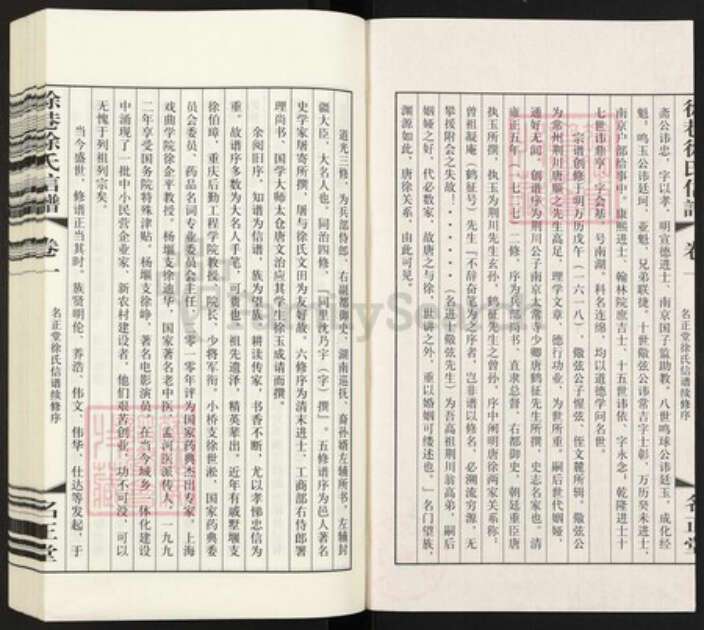 斋公讳忠,字以孝,明宣德进士,南京国子监助教。八世鸣球公讳廷玉,成化经
魁。鸣玉公讳廷珂,亚魁,兄弟联捷。十世敬弦公讳常吉字士彰,万历癸未进士,
南京户部给事中。康熙进士、翰林院庶吉士、十五世讳依,字永念;乾隆进士十
七世讳书亨,字会基,号南湖。科名连绵,均以道德学问名世。
宗谱创修于明万历戊午(一六一八),敬弦公子惺弦、侄文麓所辑,敬弦公
为常州荆川唐顺之先生高足,理学文章,德行功业,为世所重。嗣后世代姻娅,
通好无间,创谱序为荆川公子南京太常寺少卿唐鹤征先生所撰,史志名家也。清
雍正五年(一七二七)二修,序为兵部尚书、直隶总督、右都御史、朝廷重臣唐
执玉所撰,执玉为荆川先生玄孙,鹤征先生之曾孙,序中阐明唐徐两家关系称:
曾祖凝庵(鹤征号)先生『不辞奋笔为之序者,岂非谱以修名,必溯流穷源,无
攀援附会之失故!……(名进士敬弦先生)为吾高祖荆川翁高弟,嗣后
姻娅之好,代必数家,故唐之与徐,世讲之外,重以婚姻可缕述也。』名门望族,
渊源如此,唐徐关系,由此可见。
名正堂徐氏信谱续修序
名正堂
道光三修,为兵部侍郎、右副都御史、湖南巡抚、裔孙婿左辅所书,左辅封
疆大臣,大名人也。同治四修,同里沈乃字(字)撰。五修谱序为邑人著名
史学家屠寄所撰,屠与徐氏文田为友好故。六修序为清末进士、工商部右侍郎署
理尚书、国学大师太仓唐文治应其学生徐玉成请而撰。
余阅旧序,知谱为信谱,族为望族,耕读传家,书香不断,尤以孝悌忠信为
重。故谱序多数为大名人手笔,可贵也。祖先遗泽,精英辈出,近年有戚墅堰支
徐伯璋,重庆后勤工程学院教授、院长,少将军衔,小桥支徐世淞,国家药典委
员会委员、药品名词专业委员会主任,二零一零年评为国家药典杰出专家,上海
戏曲学院徐企平教授。杨堰支徐迪华,国家著名老中医、孟河医派传人,一九九
二年享受国务院特殊津贴。杨堰支徐峥,著名电影演员。在当今城乡一体化建设
中涌现了一批中小民营企业家、新农村建设者,他们艰苦创业,功不可没,可以
无愧于列祖列宗矣。
当今盛世,修谱正当其时。族贤明伦、养浩、伟文、伟华、仕达等发起,于
徐巷徐氏信谱
卷一
名正堂徐氏信谱续修序
名正堂